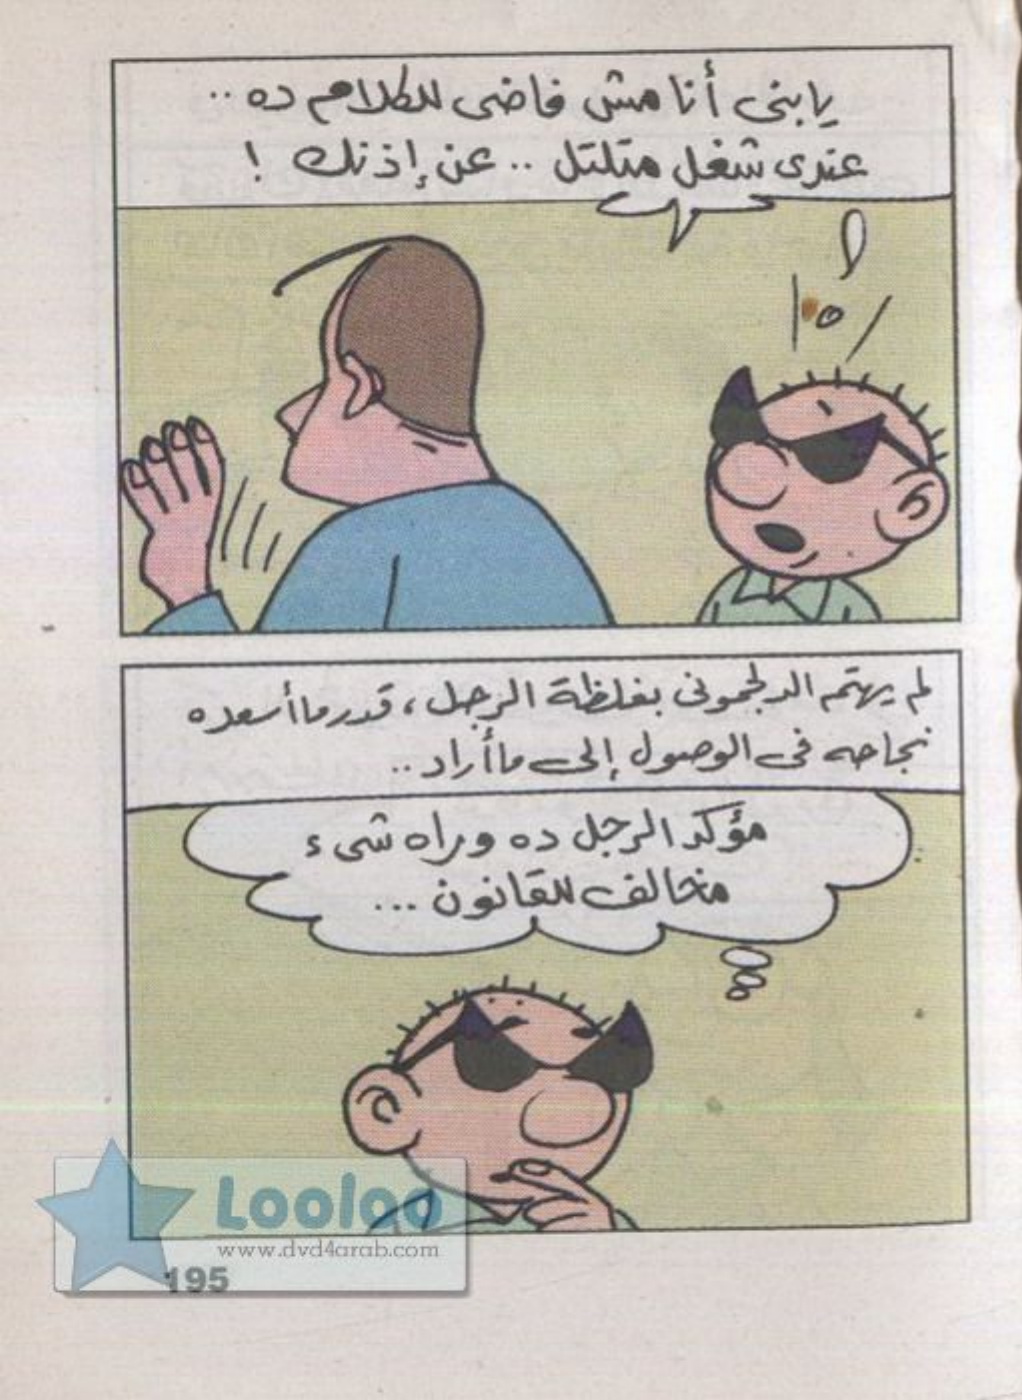 يابنى أنا مش فاضى للكلام ده ..
عندى شغل متلتل .. عن إذنك !
!
لم يهتم الدلجمونى بغلظة الرجل ، قدر ما أسعده
نجاحه فى الوصول إلى ما أراد ..
مؤكد الرجل ده وراه شىء
مخالف للقانون ...
Looloo
www.dvd4arab.com
195